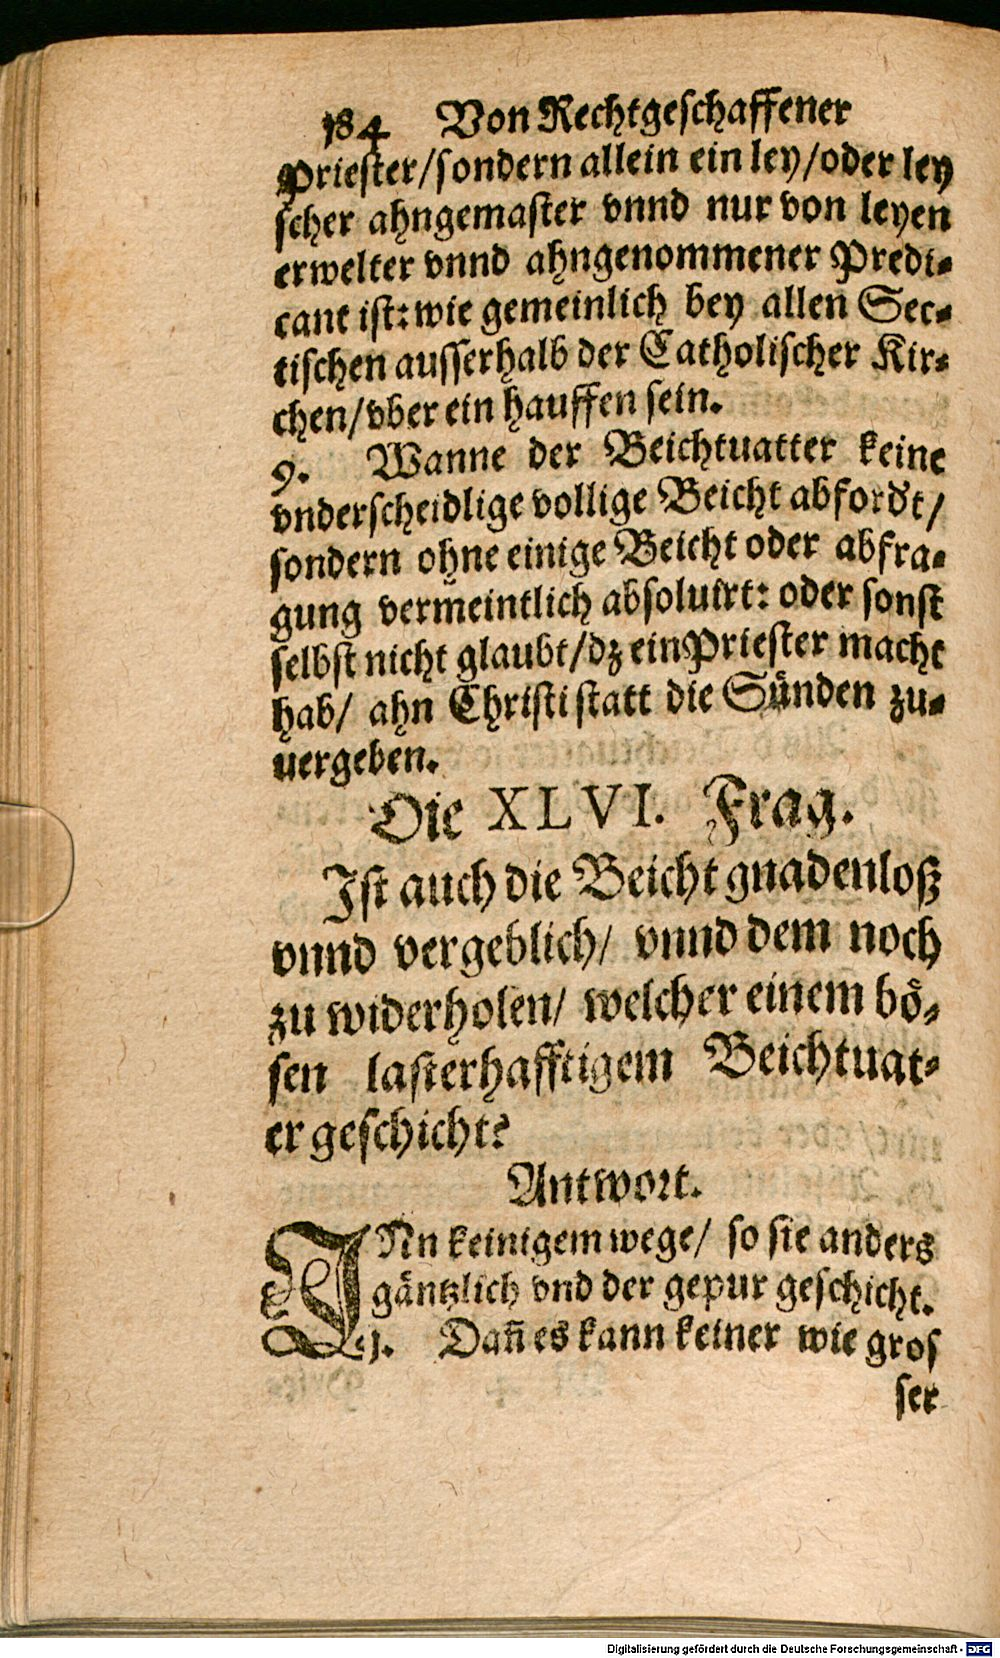 184 Von Rechtgeschaffener
Priester/sondern allein ein ley/oder ley
scher ahngemaster vnnd nur von leyen
erwelter vnnd ahngenommener Predi-
cant ist: wie gemeinlich bey allen Sec-
tischen ausserhalb der Catholischer Kir-
chen/vber ein hauffen sein.
9. Wanne der Beichtuatter keine
vnderscheidlige vollige Beicht abfordt/
sondern ohne einige Beicht oder abfra-
gung vermeintlich absoluirt: oder sonst
selbst nicht glaubt/dz ein Priester macht
hab/ ahn Christi statt die Sünden zu-
uergeben.
Die XLVI. Frag.
Ist auch die Beicht gnadenloß
vnnd vergeblich/ vnnd dem noch
zu widerholen/ welcher einem bö-
sen lasterhafftigem Beichtuat-
er geschicht?
Antwort.
INn keinigem wege/ so sie anders
gäntzlich vnd der gepur geschicht.
1. Dan̄ es kann keiner wie gros
ser
Digitalisierung gefördert durch die Deutsche Forschungsgemeinschaft - DFG